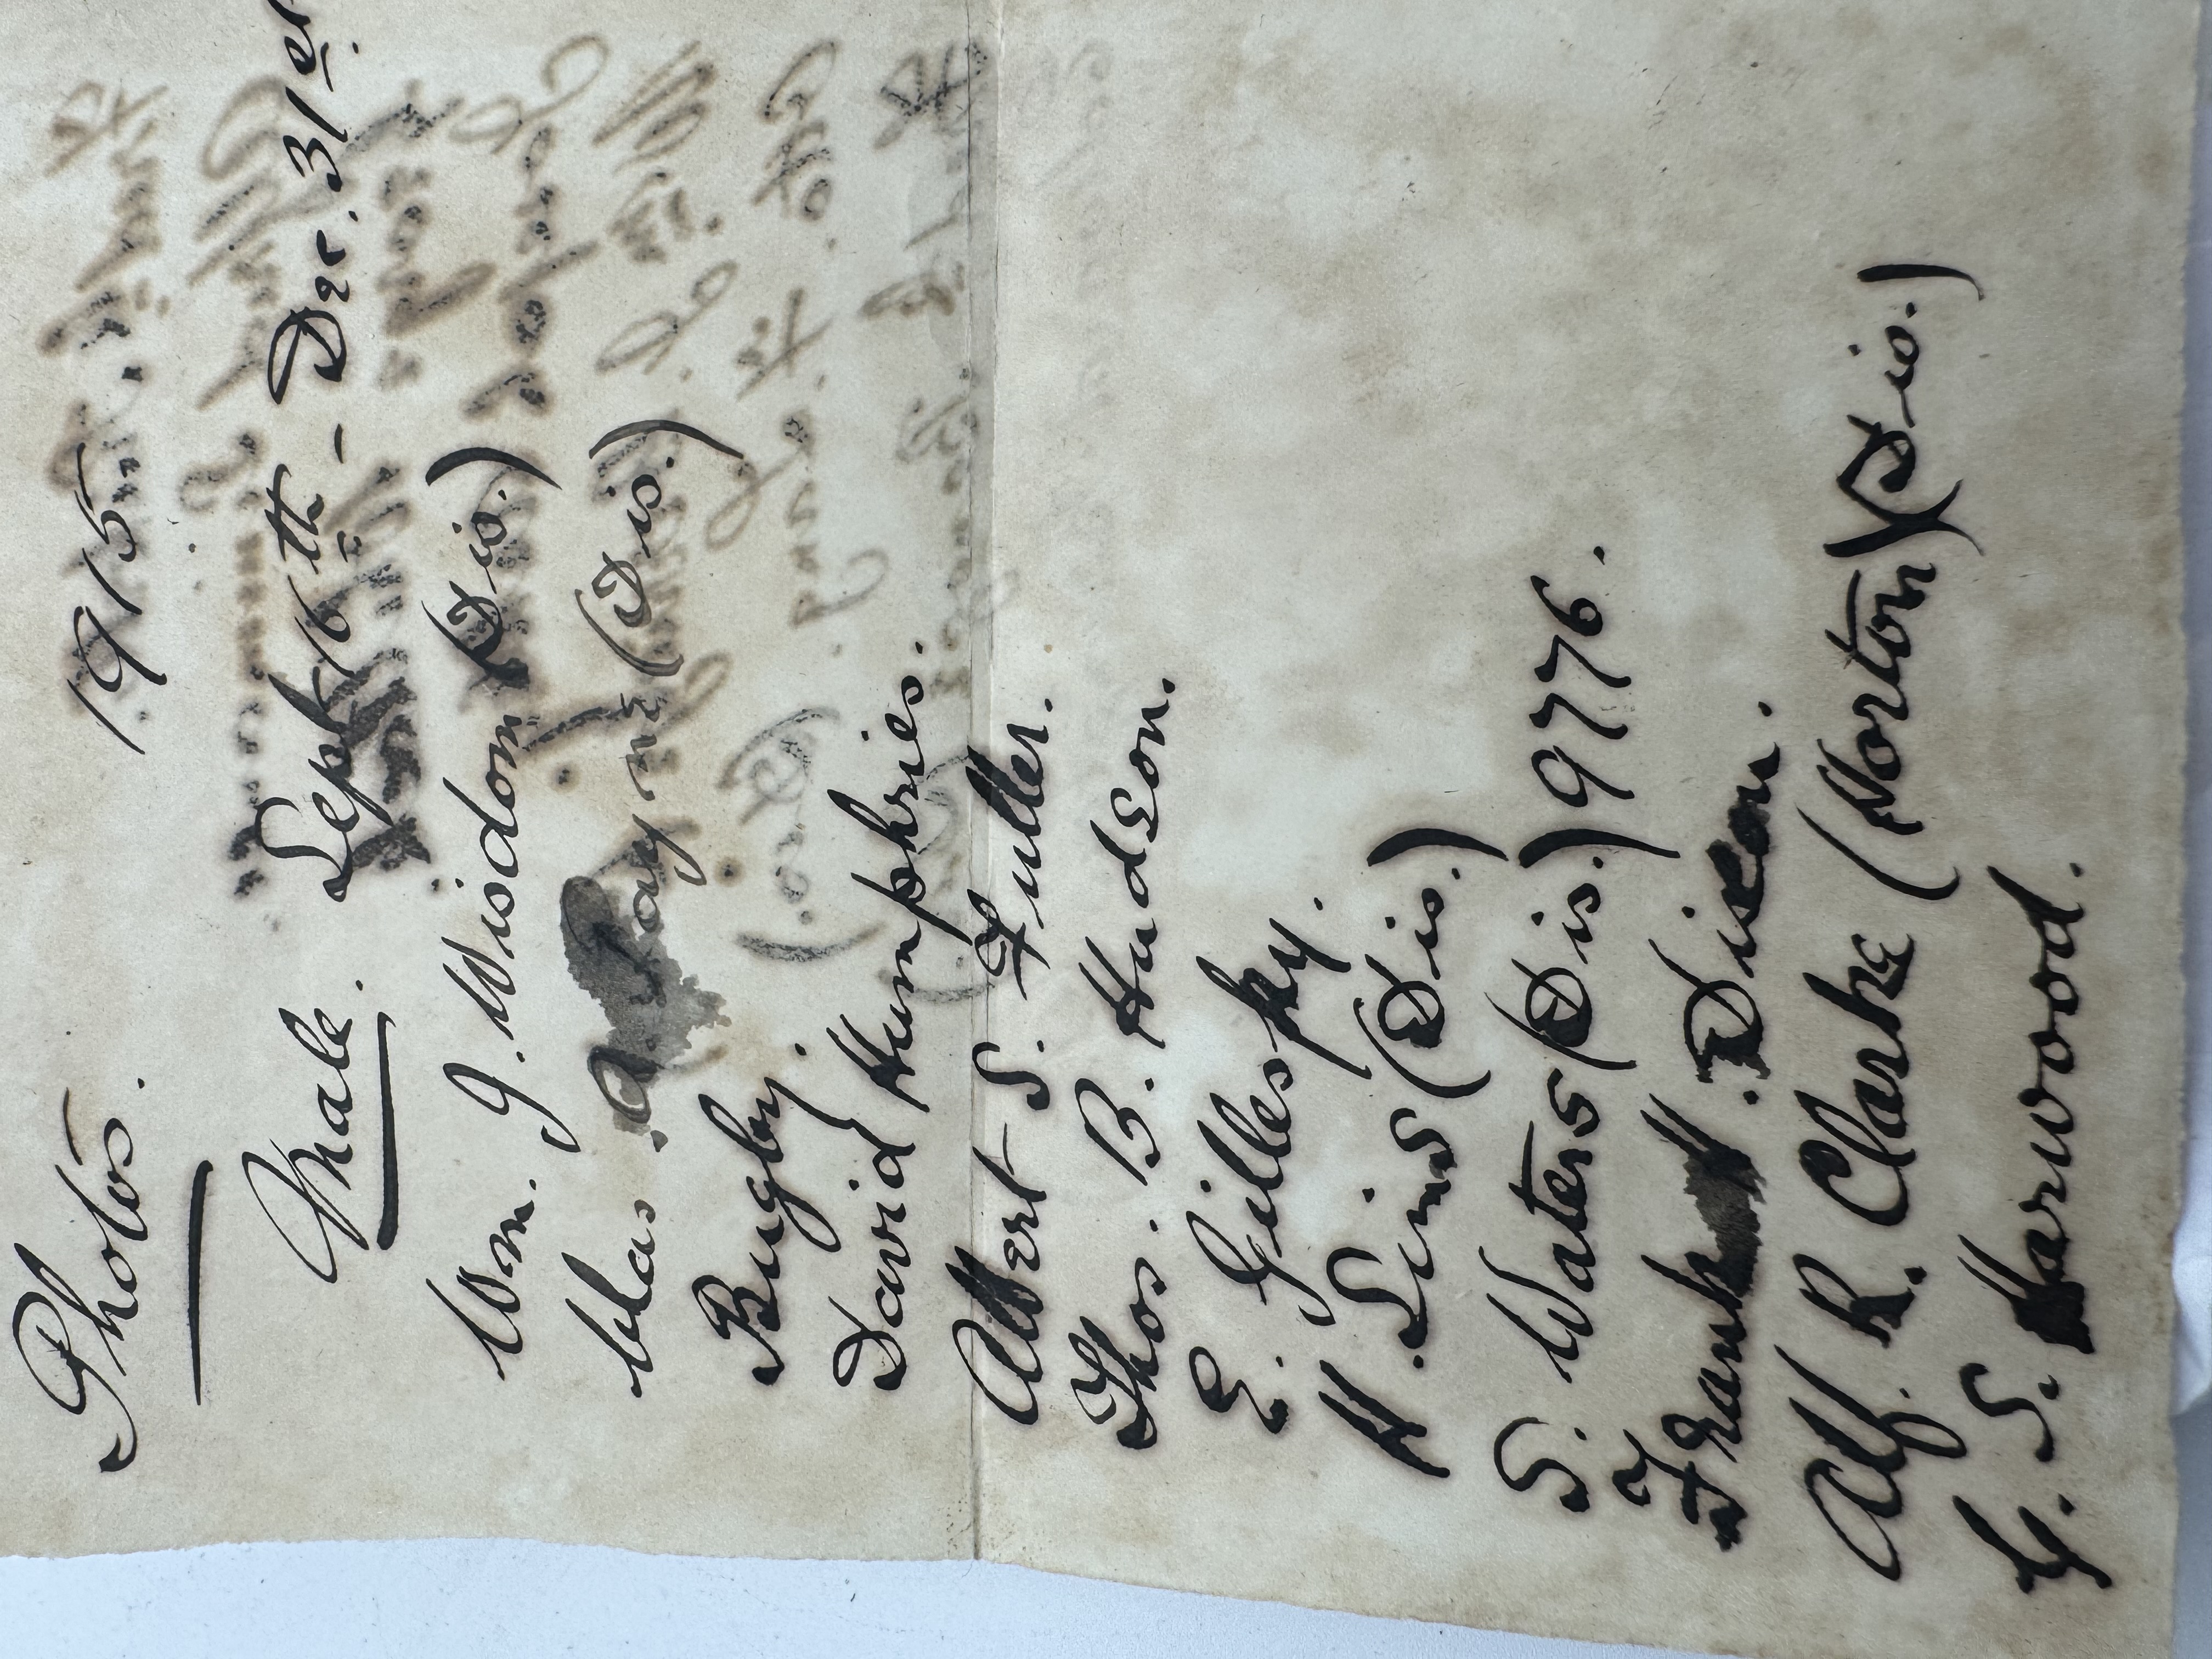 Photos. 1915
Male. Sept 6th - Dec. 31st
Wm. J. Wisdom (Dis.)
Chas. A. Payne (Dis.)
Bugby.
David Humphries.
Albert S. Fuller.
Thos. B. Hudson.
E. Gillespy.
H. Sims (Dis.)
S. Waters (Dis.) 9776.
Frank H. Dixon.
Alf. R. Clarke (Norton) (Dis.)
G. S. Harwood.